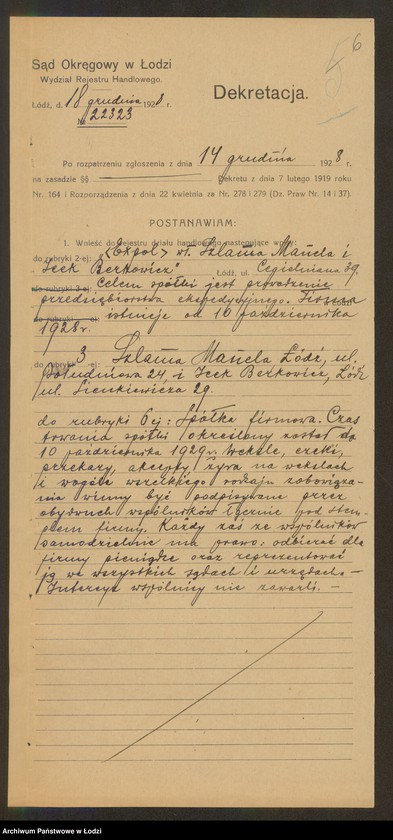 6
Sąd Okręgowy w Łodzi
Wydział Rejestru Handlowego.
Łódź, d. 18 grudnia 1928 r.
№ 22323
Dekretacja.
Po rozpatrzeniu zgłoszenia z dnia 14 grudnia 1928 r.
na zasadzie §§ Dekretu z dnia 7 lutego 1919 roku
Nr. 164 i Rozporządzenia z dnia 22 kwietnia za Nr. 278 i 279 (Dz. Praw Nr. 14 i 37).
POSTANAWIAM:
1. Wnieść do rejestru działu handlowego następujące wpisy:
do rubryki 2-ej: „Expol” wł. Szlama Manela i
Icek Berkowicz" Łódź, ul. Cegielniana 39.
do rubryki 3-ej: Celem spółki jest prowadzenie
przedsiębiorstwa ekspedycyjnego. Firma
do rubryki -ej: istnieje od 10 października
1928 r.
do rubryki 3 -ej: Szlama Manela Łódź, ul.
Południowa 24 i Icek Berkowicz, Łódź
ul. Sienkiewicza 29.
do rubryki 6ej: Spółka firmowa. Czas
trwania spółki określony został do
10 października 1929 r. Weksle, czeki,
przekazy, akcepty, żyra na wekslach
i wogóle wszelkiego rodzaju zobowiąza-
nia winny być podpisywane przez
obydwóch wspólników łącznie pod stem-
plem firmy. Każdy zaś ze wspólników
samodzielnie ma prawo: odbierać dla
firmy pieniądze oraz reprezentować
ją we wszystkich sądach i urzędach. —
Intercyz wspólnicy nie zawarli. —
Archiwum Państwowe w Łodzi